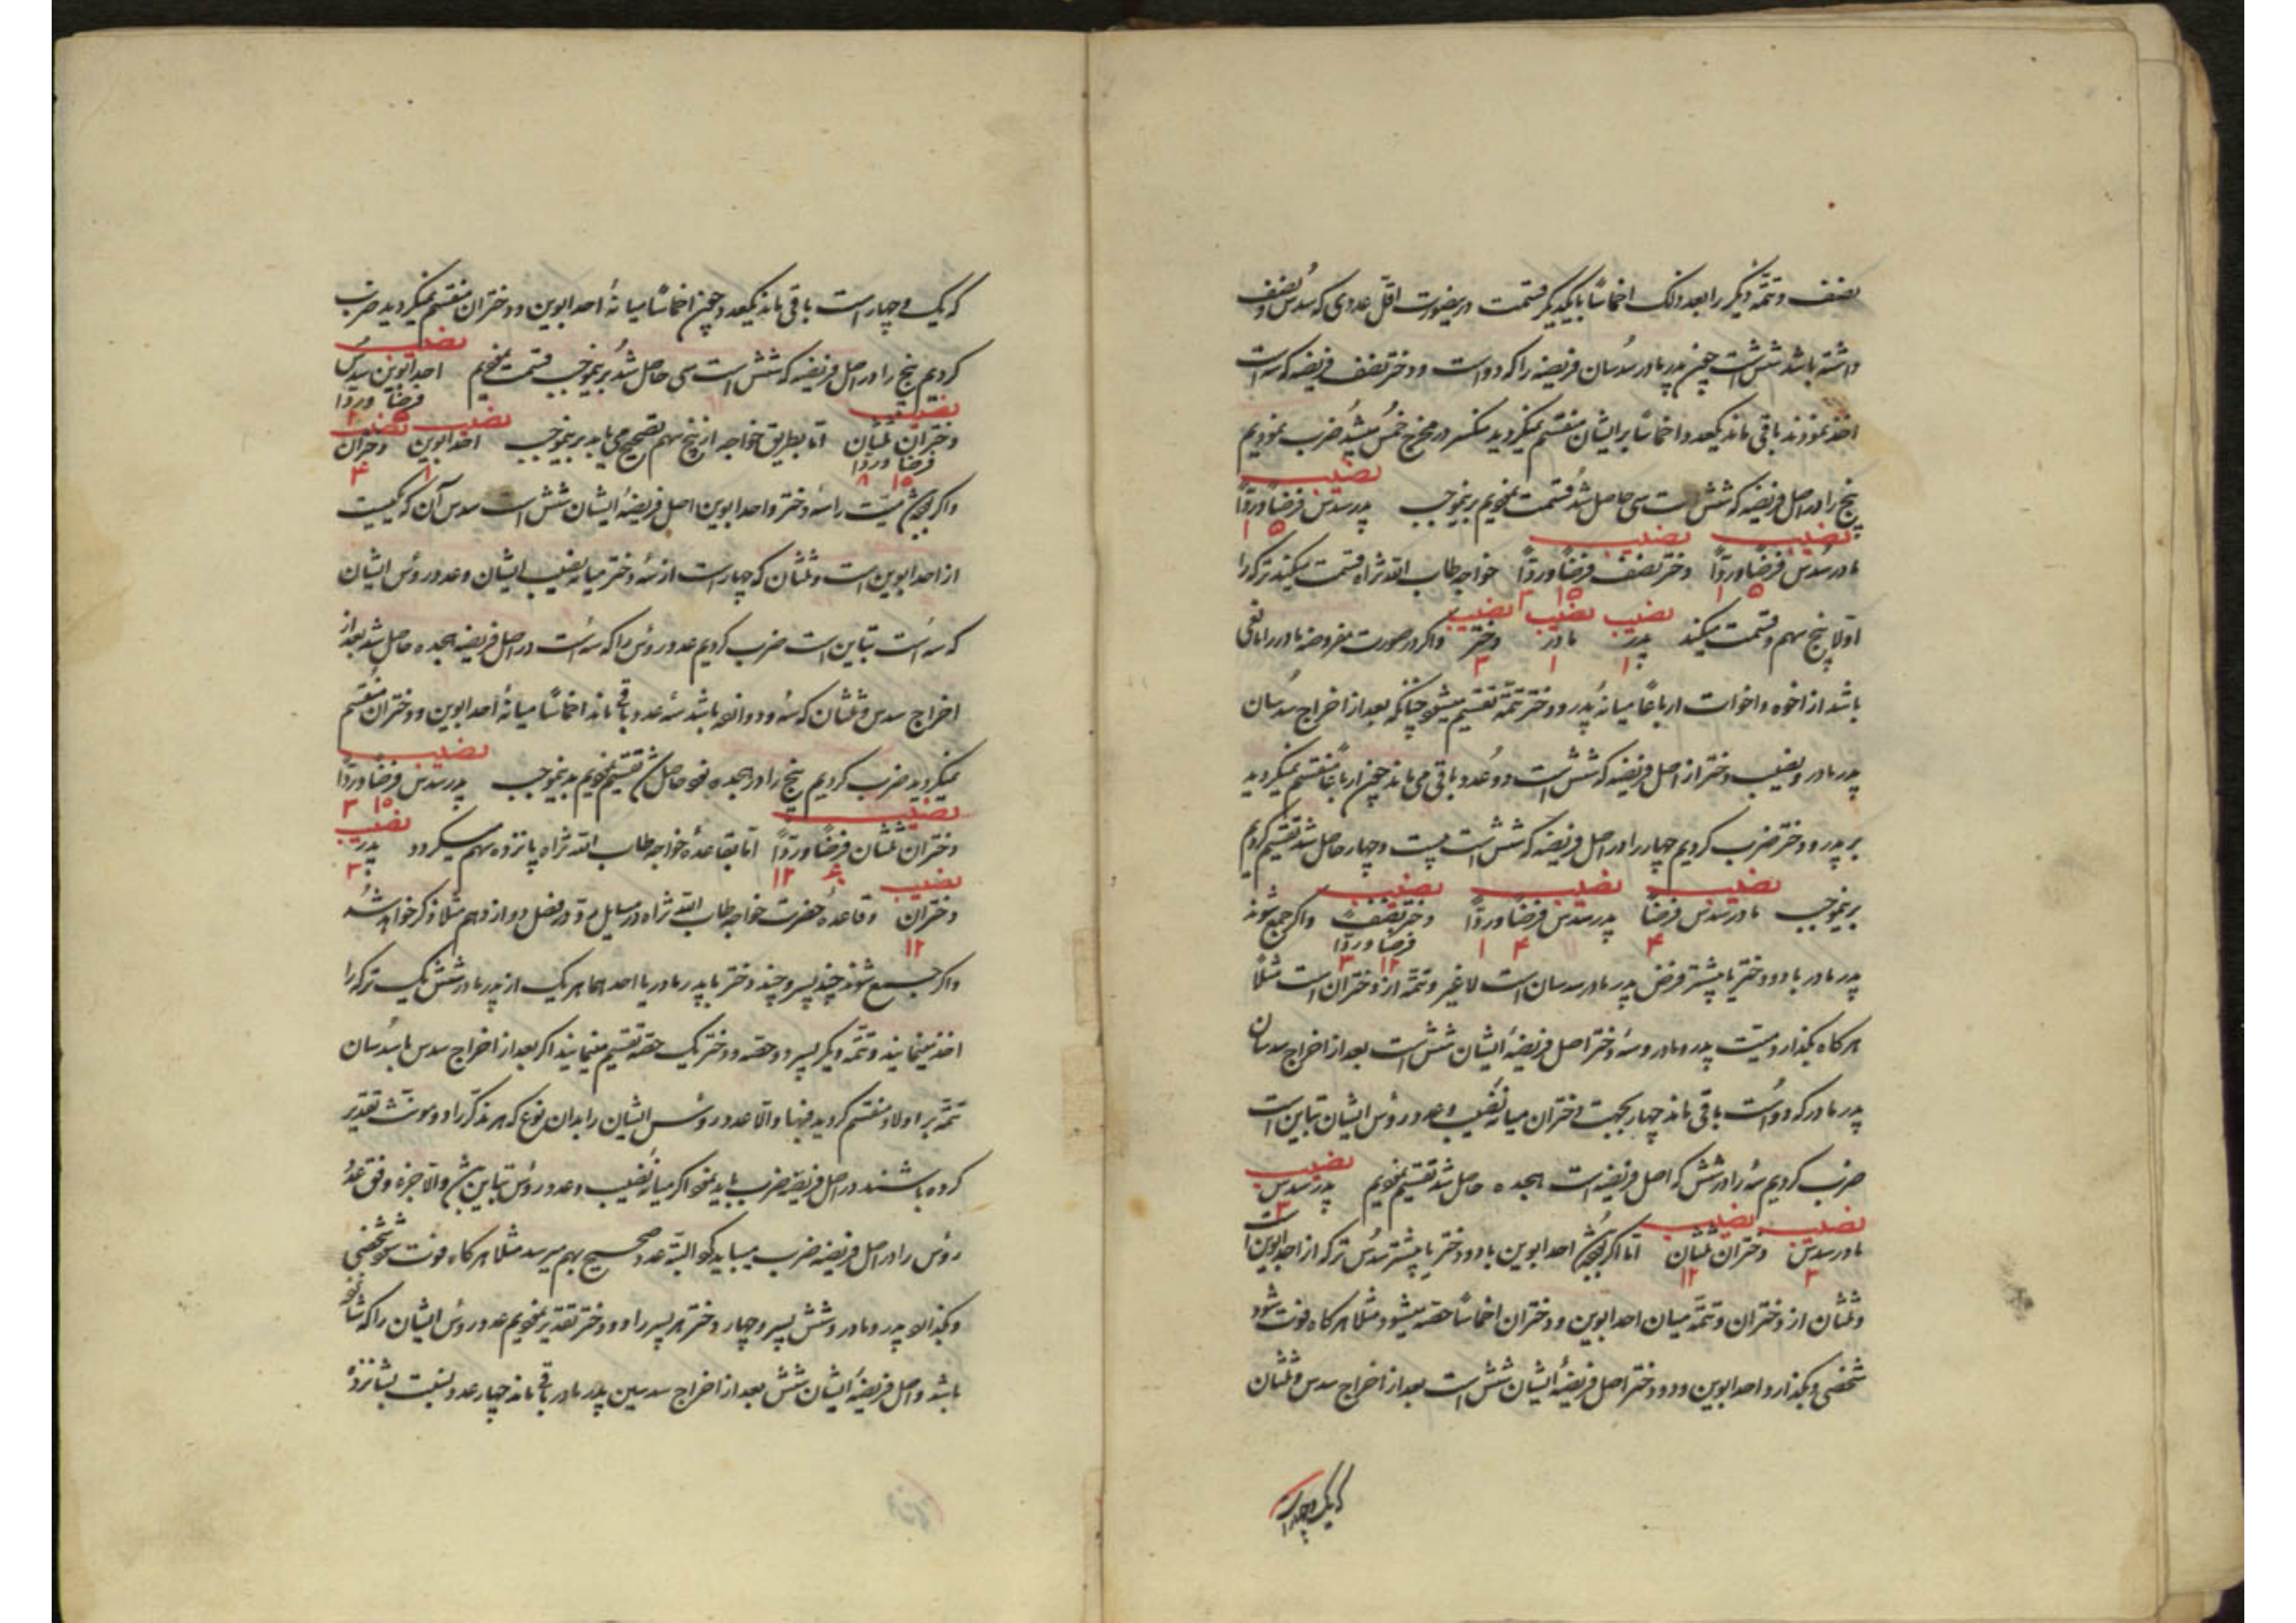 نصف و تتمّه دیگر را بعد ذلک اخماساً بایکدیگر قسمت درینصورت اقلّ عددی که سدس و نصف
داشته باشد شش است چون پدر مادر سدسان فریضه را که دو است و دختر نصف فریضه که سه است
اخذ نمودند باقی ماند یکعدد و اخماساً بر ایشان منقسم نمیکردید منکسر در مخرج خمس میشد ضرب نمودیم
نصیب
پنج را در اصل فریضه که شش است سی حاصل شد قسمت نمودیم برینموجب پدر سدس فرضاً و ردّاً
۵ ۱
نصیب نصیب
مادر سدس فرضاً و ردّاً دختر نصف فرضاً و ردّاً خواجه طاب الله ثراه قسمت میکند ترکه را
۵ ۱ ۱۵ ۳
نصیب نصیب نصیب
اوّلا پنج سهم و قسمت میکند پدر مادر دختر و اکر در صورت مفروضه مادر را مانعی
۱ ۱ ۳
باشد از اخوه و اخوات ارباعاً میانهٔ پدر و دختر تتمّه تقسیم میشود چنانکه بعد از اخراج سدسان
پدر مادر و نصیب دختر از اصل فریضه که شش است دو عدد باقی می ماند چون ارباعاً منقسم نمیکردید
بر پدر و دختر ضرب کردیم چهار را در اصل فریضه که شش است بیست و چهار حاصل شد تقسیم کردیم
نصیب نصیب نصیب
برینموجب مادر سدس فرضاً پدر سدس فرضاً و ردّاً دختر نصف فرضاً و ردّاً و اکر جمع شوند
۴ ۴ ۱ ۱۲ ۳
پدر مادر با دو دختر یا بیشتر فرض پدر مادر سدسان است لاغیر و تتمّه از دختران است مثلاً
هرکاه بکذارد میّت پدر و مادر و سه دختر اصل فریضهٔ ایشان شش است بعد از اخراج سدسان
پدر مادر که دو است باقی ماند چهار بجهت دختران میانه نصیب و عدد رؤس ایشان تباین است
ضرب کردیم سه را در شش که اصل فریضه است هجده حاصل شد تقسیم نمودیم پدر سدس
نصیب
۳
نصیب نصیب
مادر سدس دختران ثلثان امّا اکر باشد احد ابوین با دو دختر یا بیشتر سدس ترکه از احد ابوین است
۳ ۱۲
و ثلثان از دختران و تتمّه میان احد ابوین و دختران اخماساً حصّه میشود مثلا هرکاه فوت شود
شخصی و بکذارد احد ابوین و دو دختر اصل فریضهٔ ایشان شش است بعد از اخراج سدس و ثلثان
که یک و چهار است
که یک و چهار است باقی ماند یکعدد و چون اخماساً میانهٔ احد ابوین و دختران منقسم نمیکردید ضرب
نصیب
کردیم پنج را در اصل فریضه که شش است سی حاصل شد برینموجب قسمت نمودیم احد ابوین سدس فرضاً و ردّاً
نصیب نصیب نصیب
دختران ثلثان فرضاً و ردّاً امّا بطریق خواجه از پنج سهم تصحیح می یابد برینموجب احد ابوین دختران
۱ ۴
و اکر باشد میّت را سه دختر و احد ابوین اصل فریضهٔ ایشان شش است سدس آن که یکیست
از احد ابوین است و ثلثان که چهار است از سه دختر میانه نصیب ایشان و عدد رؤس ایشان
که سه است تباین است ضرب کردیم عدد رؤس را که سه است در اصل فریضه هجده حاصل شد بعد از
اخراج سدس و ثلثان که سه و دوازده باشد سه عدد باقی ماند اخماساً میانهٔ احد ابوین و دختران منقسم
نصیب
نمیکردید ضرب کردیم پنج را در هجده نود حاصل شد تقسیم نمودیم بدینموجب پدر سدس فرضاً و ردّاً
۱۵ ۳
نصیب نصیب
دختران ثلثان فرضاً و ردّاً امّا بقاعدهٔ خواجه طاب الله ثراه پانزده سهم میکردد پدر
۱۲ ۳
نصیب
دختران و قاعدهٔ حضرت خواجه طاب الله ثراه در مسایل در فصل دوازدهم مثلا ذکر خواهد شد
۱۲
و اکر جمع شوند چند پسر و چند دختر با پدر مادر یا احدهما هر یک از پدر مادر شش یک ترکه را
اخذ مینمایند و تتمّه دیکر پسر دو حصّه و دختر یک حصّه تقسیم مینمایند اکر بعد از اخراج سدس یا سدسان
تتمّه بر اولاد منقسم کردید فبها و الّا عدد رؤس ایشان را بدان نوع که هر مذکّر را دو مونّث تقدیر
کرده باشند در اصل فریضه ضرب باید نمود اکر میانه نصیب و عدد رؤس تباین باشد و الّا جزء وفق عدد
رؤس را در اصل فریضه ضرب میباید کرد البتّه عدد صحیح بهم میرسد مثلا هرکاه فوت شود شخصی
و بکذارد پدر و مادر و شش پسر و چهار دختر هر پسر را دو دختر تقدیر نمودیم عدد رؤس ایشان را که شانزده
باشد و اصل فریضهٔ ایشان شش بعد از اخراج سدسین پدر مادر باقی ماند چهار عدد و نسبت بشانزده